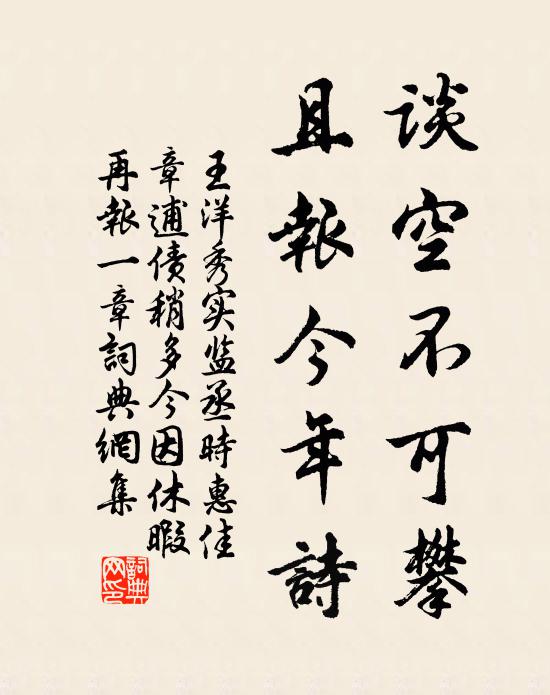 谈空不可攀
且报今年詩
王洋秀实监丞時惠佳
章逋债稍多今因休暇
再报一章詞典網集
詞典網印